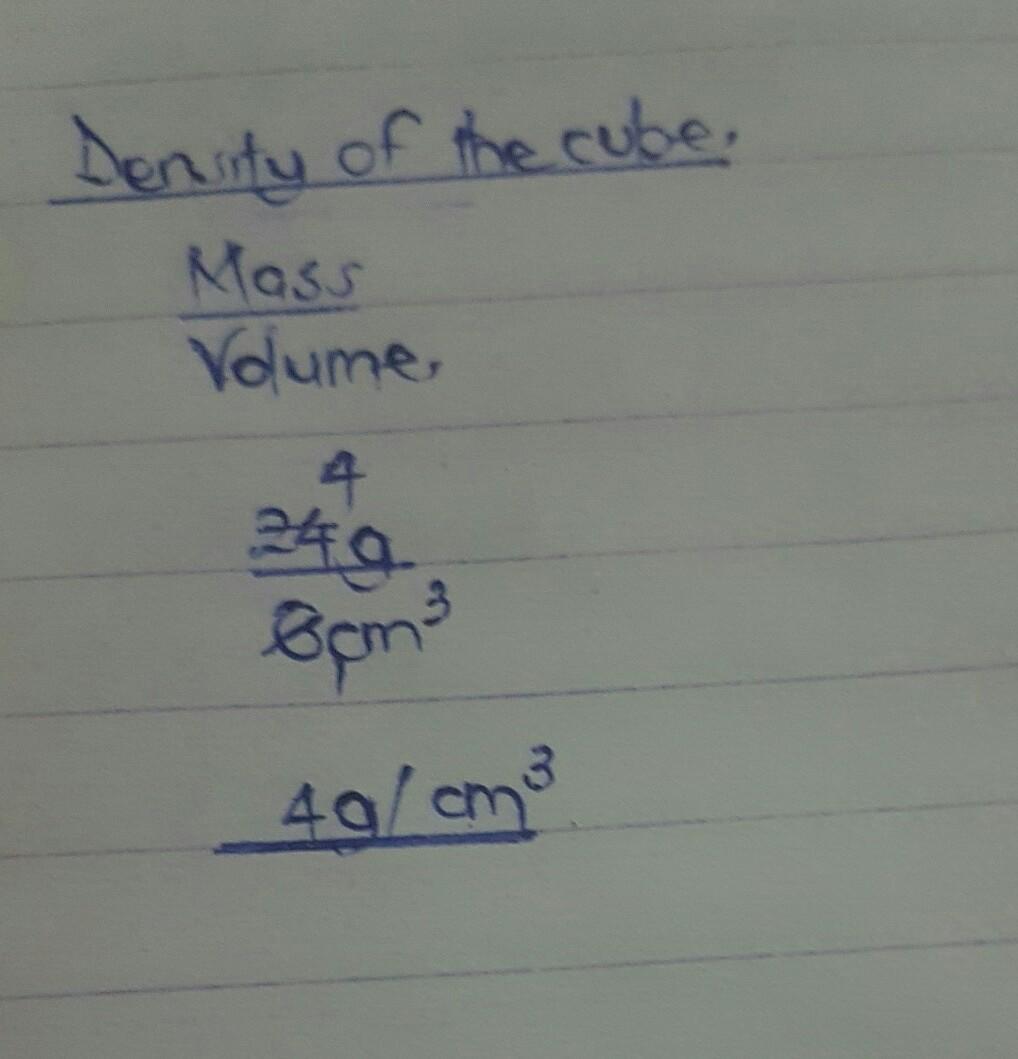 Density of the cube.
Mass
Volume.
4
24g
cm³
4g/cm³